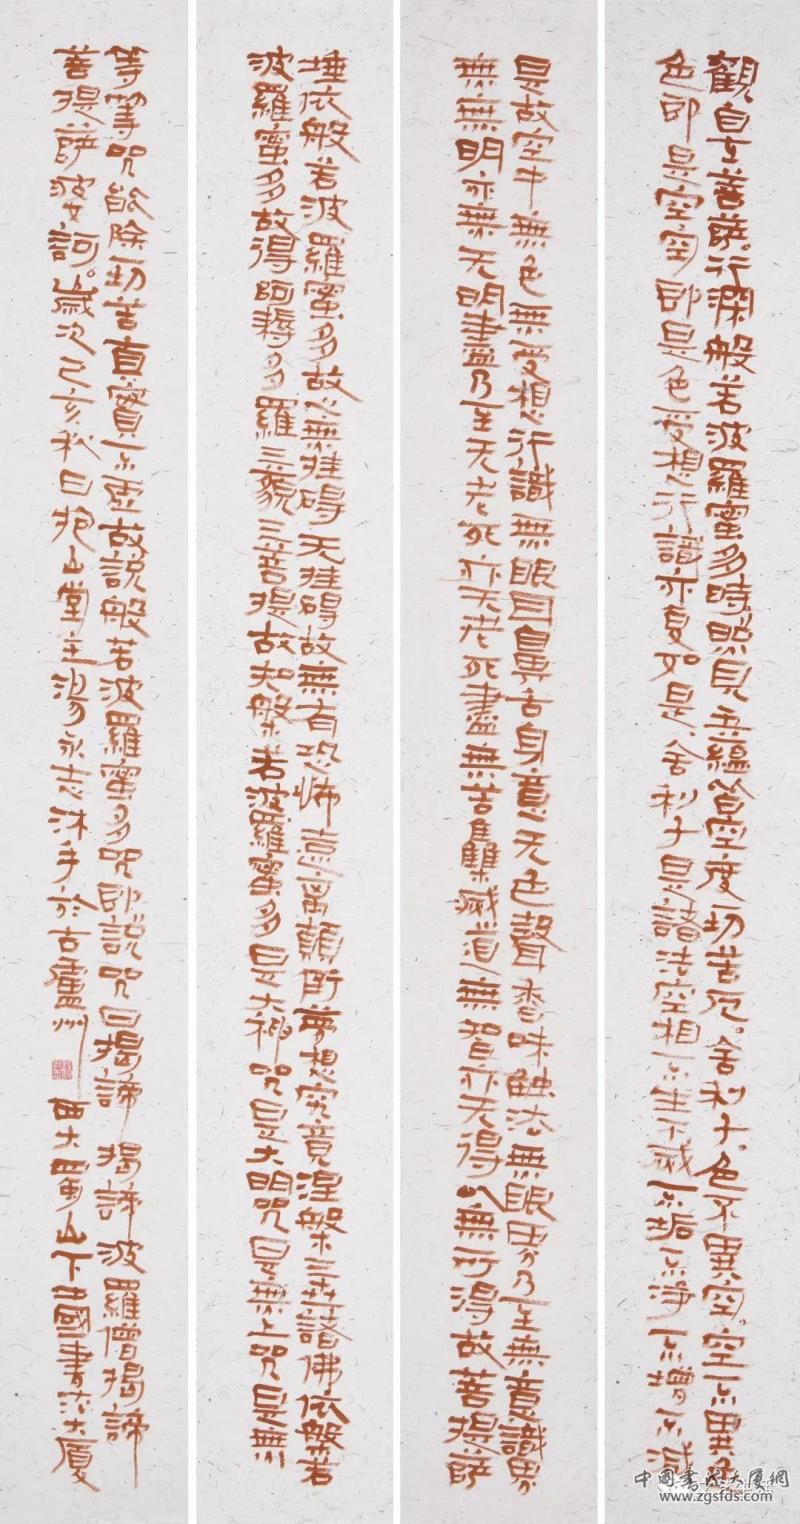 觀自在菩薩行深般若波羅蜜多時照見五蘊皆空度一切苦厄舍利子色不異空空不異色
色即是空空即是色受想行識亦復如是舍利子是諸法空相不生不滅不垢不淨不增不減
是故空中無色無受想行識無眼耳鼻舌身意无色聲香味触法無眼界乃至無意識界
無無明亦無无明盡乃至无老死亦无老死盡無苦集滅道無智亦无得以無所得故菩提薩
埵依般若波羅蜜多故心無挂碍无挂碍故無有恐怖遠离顛倒夢想究竟涅槃三世諸佛依般若
波羅蜜多故得阿耨多羅三藐三菩提故知般若波羅蜜多是大神咒是大明咒是無上咒是無
等等咒能除一切苦真實不虛故説般若波羅蜜多咒即説咒曰揭諦揭諦波羅僧揭諦
菩提薩婆訶歲次己亥秋日抱山堂主湯永志沐手於古廬州西大蜀山下中國書法大廈
中國書法大廈網
www.zgsfds.com